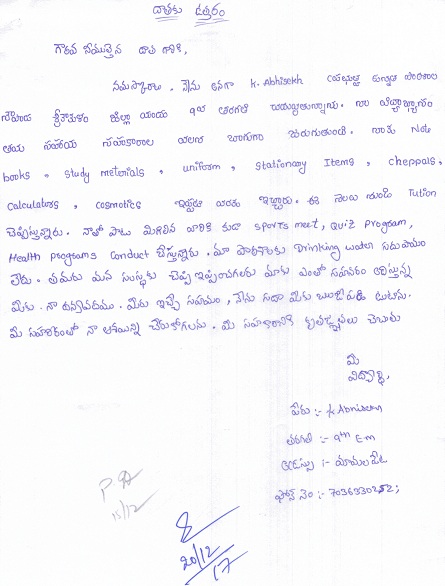 దాతకు ఉత్తరం
గౌరవ నీయులైన దాత గారికి,
నమస్కారాలు. నేను అనగా K. Abhisekh
శ్రీకాకుళం జిల్లా యందు 9వ తరగతి చదువుతున్నాను. నా విద్యాభ్యాసం
సహాయ సహకారాల వలన బాగుగా జరుగుతుంది. నాకు Note
books, study meterials, uniform, Stationary Items, cheppals,
Calculators, cosmotics ఇప్పటి వరకు ఇచ్చారు. ఈ నెలలు నుండి Tution
చెప్పిస్తున్నారు. నాతో పాటు మిగిలిన వారికి కుడా sports meet, QUIZ Program,
Health programs Conduct చేస్తున్నారు. మా పాఠశాలకు Drinking water సదుపాయం
లేదు. తమరు మన సంస్థకు చెప్పి ఇప్పించగలరు మాకు ఎంతో సహకారం చేస్తున్న
మీకు. నా ధన్యవాదములు. మీరు ఇచ్చే సహాయం, నేను సదా మీకు ఋణపడి ఉంటాను.
మీ సహకారంతో నా ఆశయాన్ని చేరుకోగలను. మీ సహకారానికి కృతజ్ఞతలు
మీ
విద్యార్థి,
పేరు :- K Abhisekh
తరగతి :- 9th E.m
అడ్రస్సు :-
ఫోన్ నెం :- 7036330252;
15/12
20/12
17